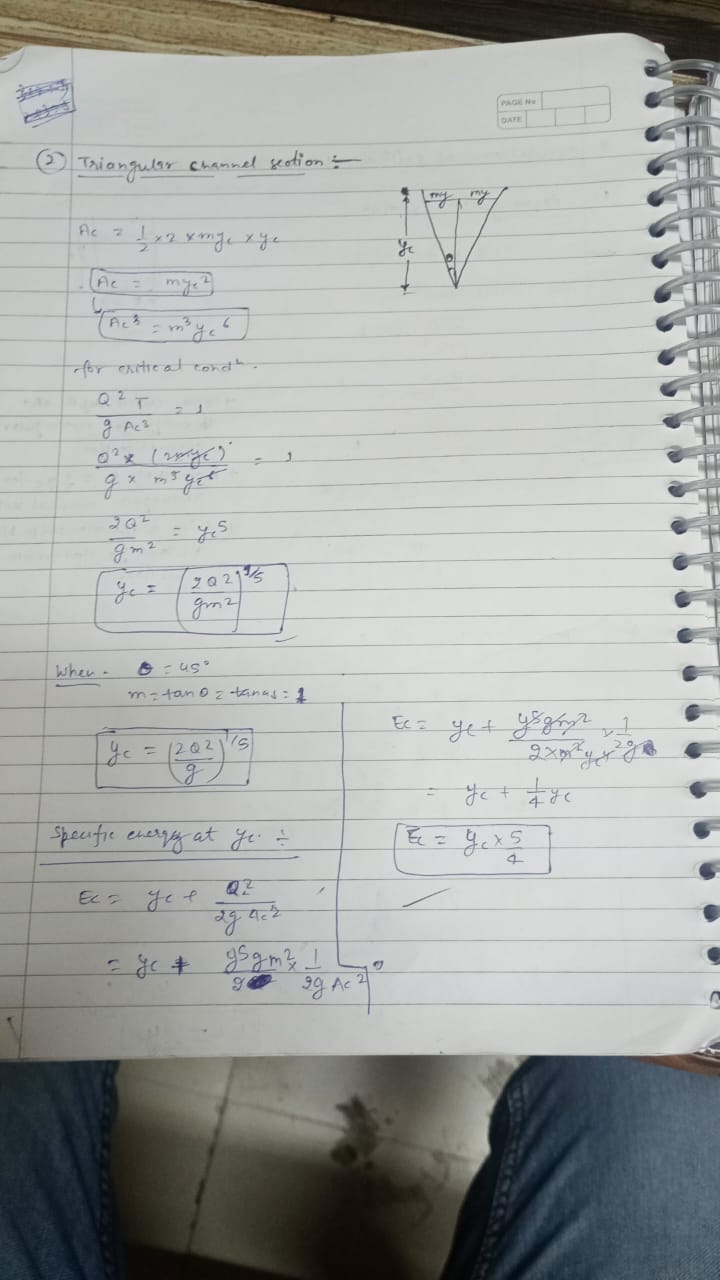 PAGE No
DATE
② Triangular channel section :-
my my
yc
θ
Ac = 1/2 × 2 × myc × yc
Ac = myc²
Ac³ = m³yc⁶
for critical condⁿ.
Q² T / g Ac³ = 1
Q² × (2myc) / g × m³yc⁶ = 1
2Q² / gm² = yc⁵
yc = (2Q² / gm²)^1/5
When - θ = 45°
m = tanθ = tan45 = 1
yc = (2Q² / g)^1/5
Specific energy at yc. ÷
Ec = yc + Q² / 2g Ac²
= yc + y⁵gm² / 2 × 1 / 2g Ac²
Ec = yc + y⁵gm² / 2×m²yc⁴ × 1 / 2g
= yc + 1/4 yc
Ec = yc × 5/4